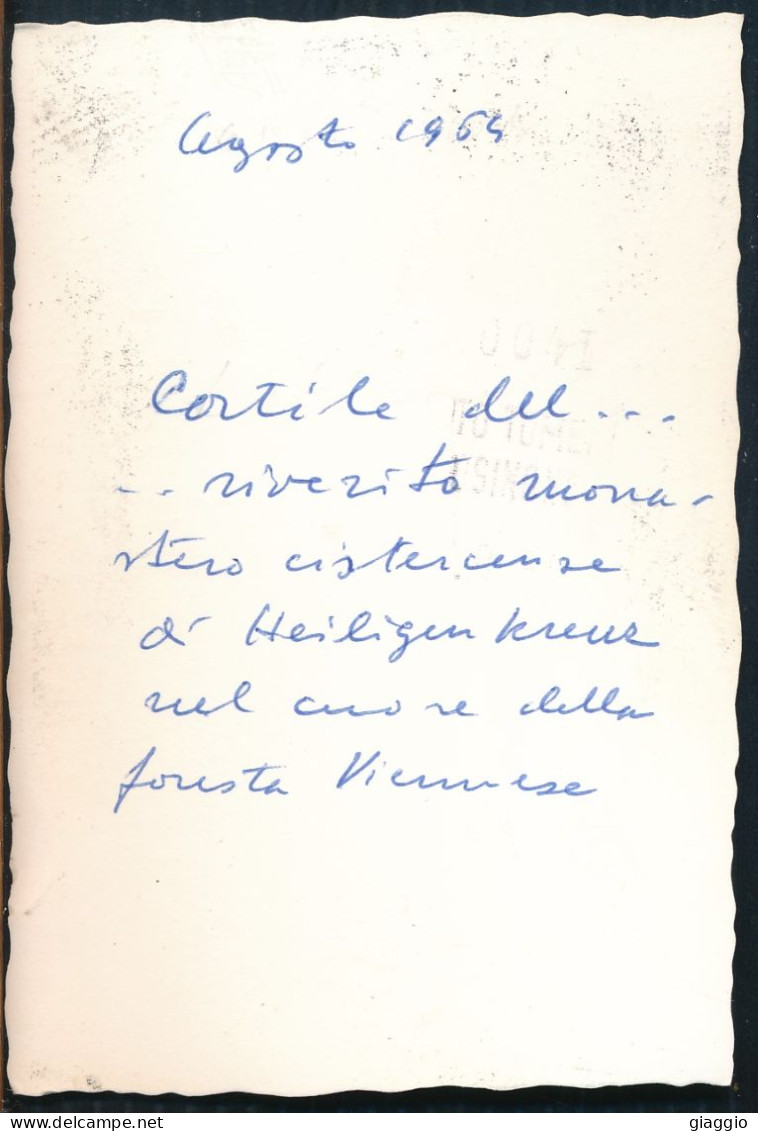 Agosto 1964
Cortile del...
... riverito mona-
stero cistercense
di Heiligenkreuz
nel cuore della
foresta Viennese
delcampe.net
giaggio